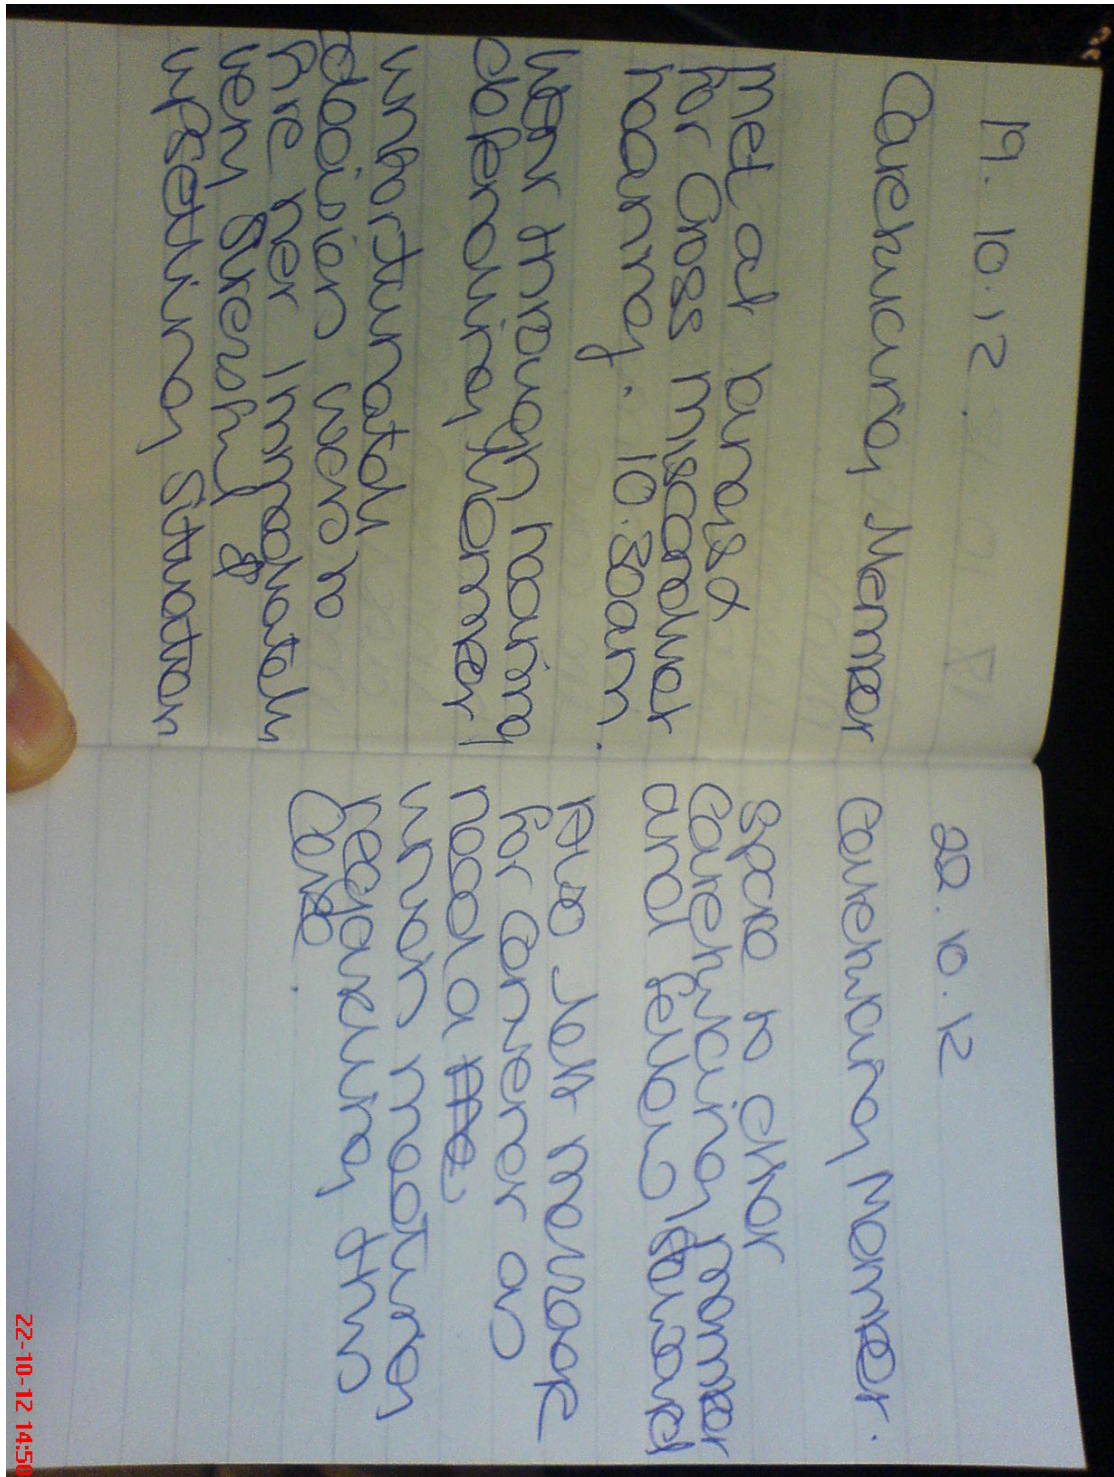 19.10.12.
Caretucing Member
Met at
for Gross Misconduct
hearing. 10.30am.
Went through hearing
defending member,
unfortunately
decision was to
fire her Immediately
very stressful &
upsetting situation
22.10.12
Member.
Spoke to other
member
and fellow steward
Also left message
for convenor as
need a
union meeting
regarding this
Case.
22-10-12 14:50